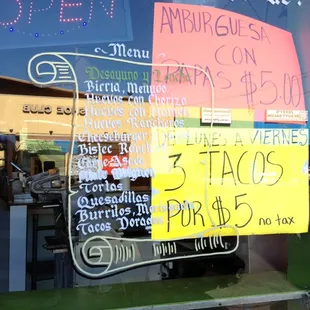 OPEN
AMBURGUESA
CON
PAPAS $5.00
Menu
Desayuno y Lonche
Birria, Menudo
Huevos con Chorizo
Huevos con
Huevos Rancheros
Cheeseburger
Bistec
Carne Asada
Tortas
Quesadillas
Burritos,
Tacos Dorados
DE LUNES A VIERNES
3 TACOS
POR $5 no tax
SHOE CLUB